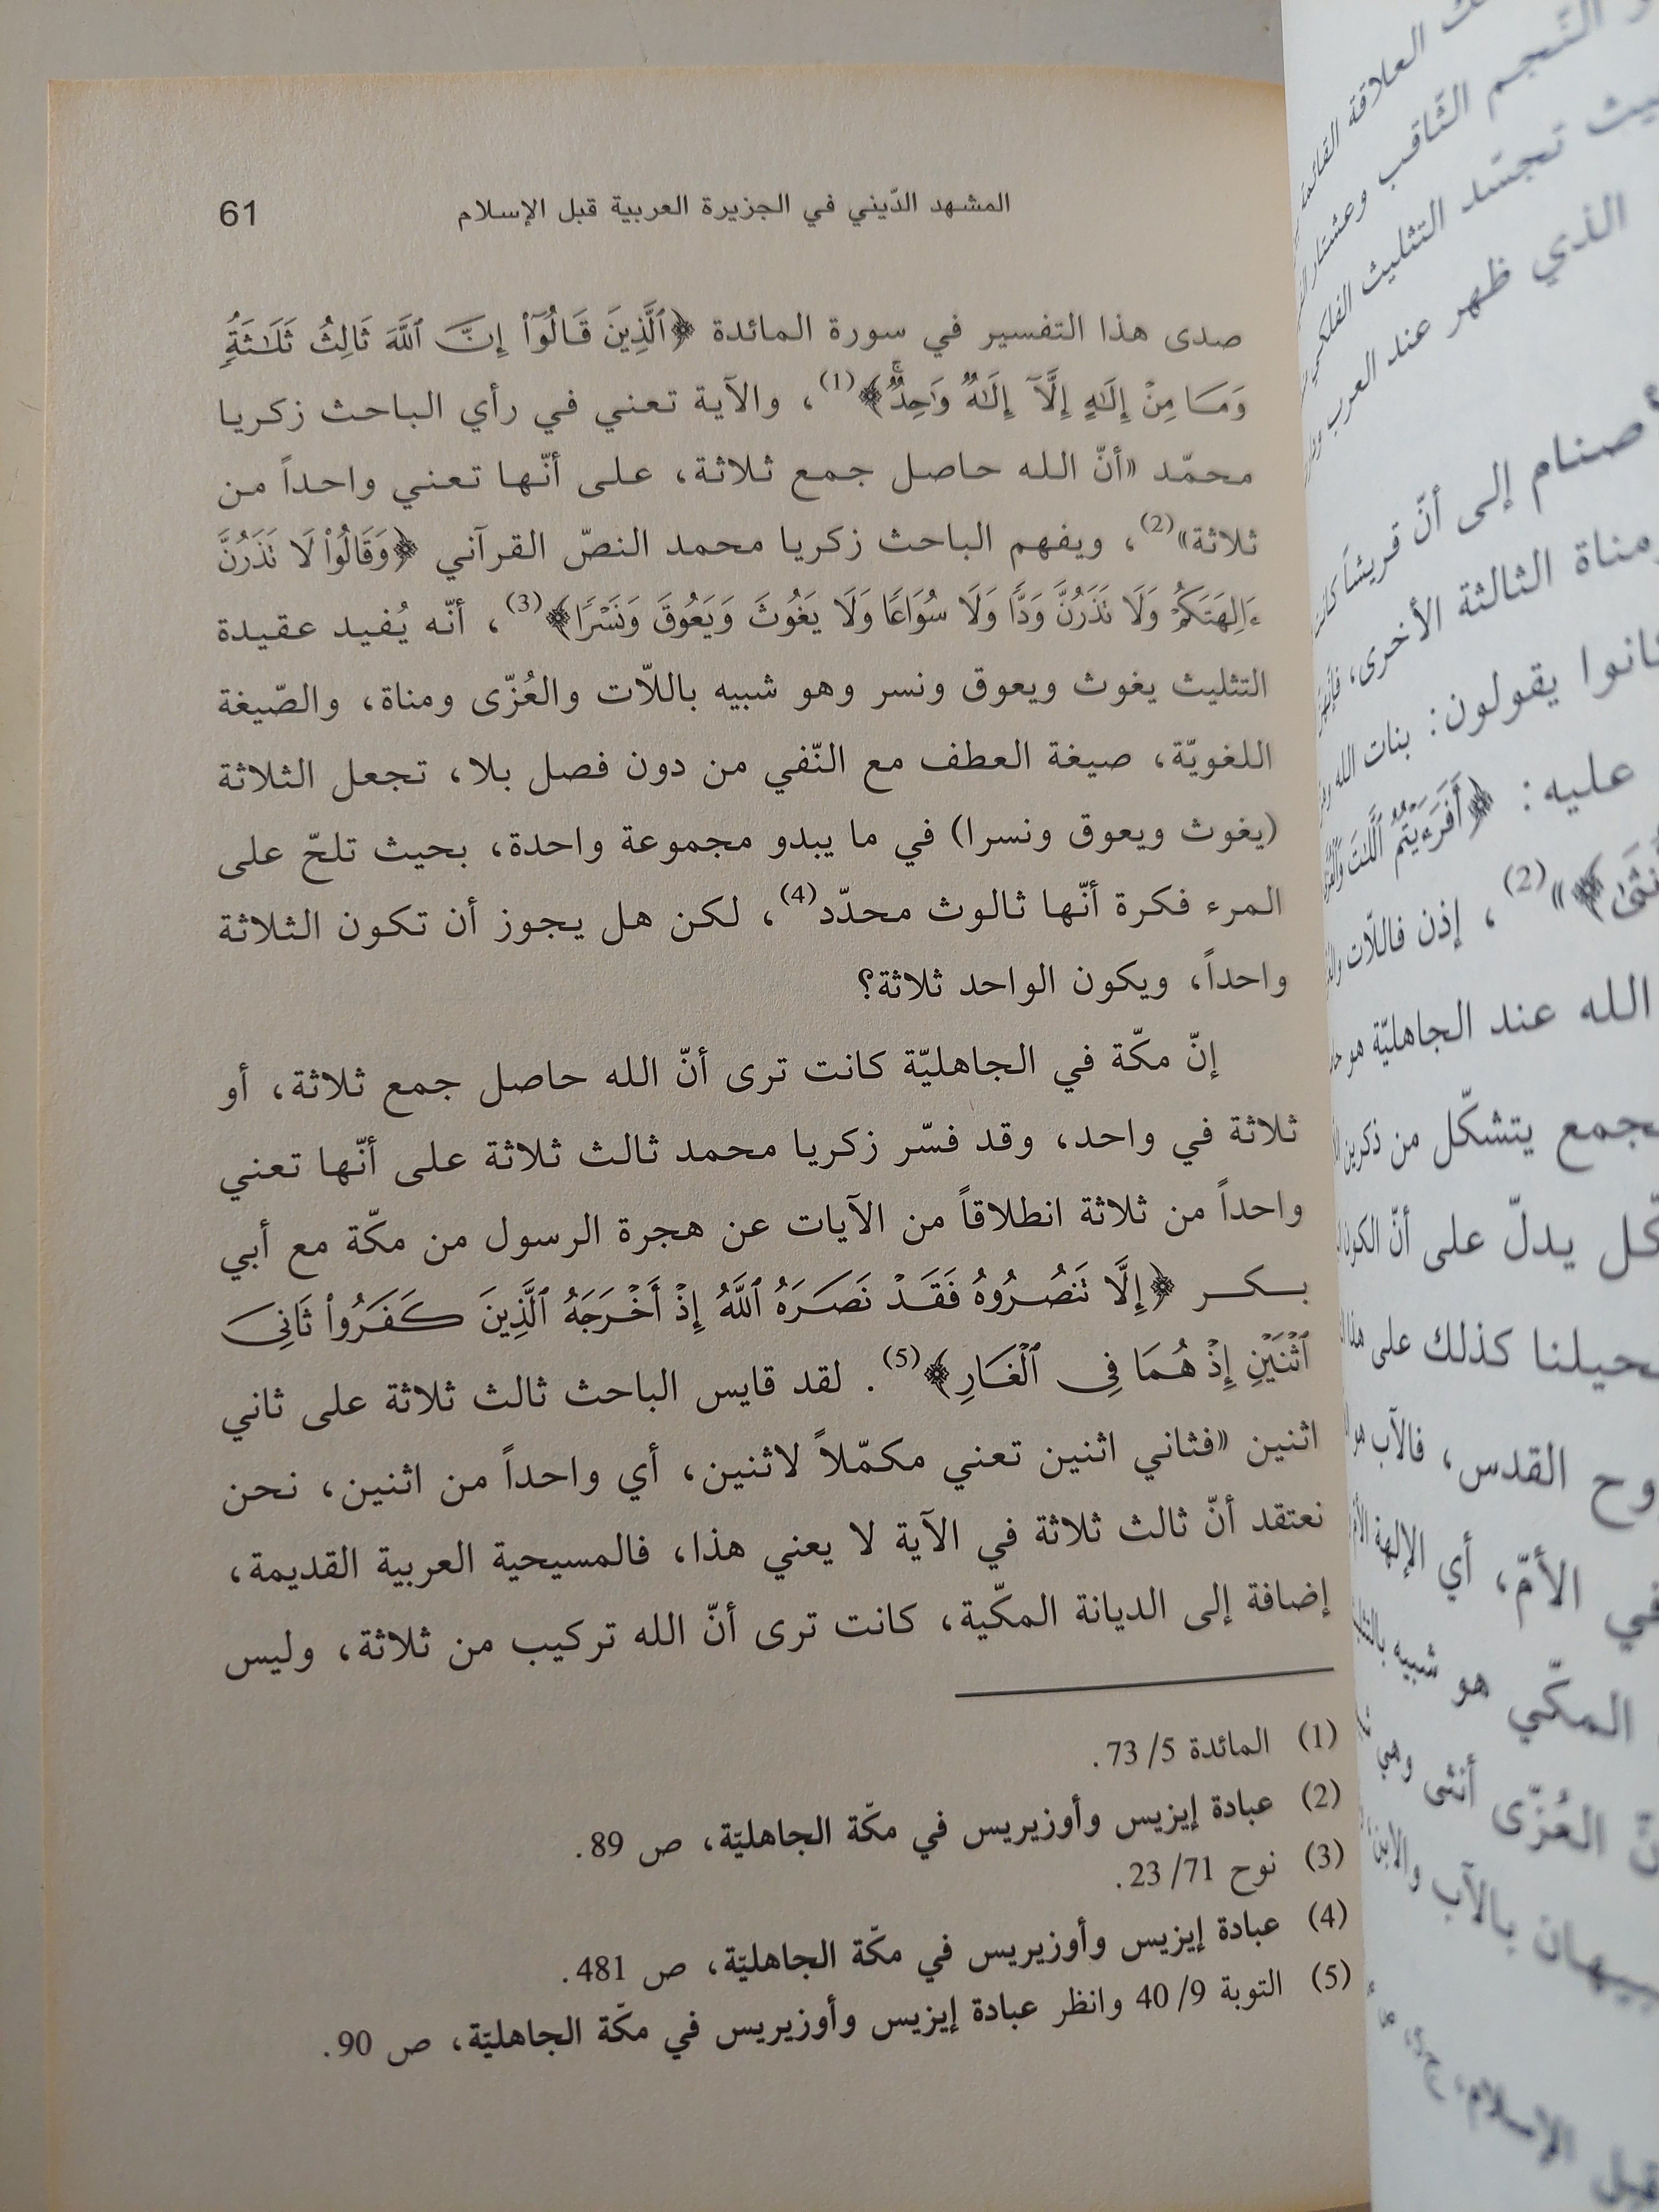 المشهد الدّيني في الجزيرة العربية قبل الإسلام 61
صدى هذا التفسير في سورة المائدة ﴿ٱلَّذِينَ قَالُوٓا۟ إِنَّ ٱللَّهَ ثَالِثُ ثَلَٰثَةٍۘ
وَمَا مِنْ إِلَٰهٍ إِلَّآ إِلَٰهٌ وَٰحِدٌۚ﴾(1)، والآية تعني في رأي الباحث زكريا
محمّد «أنّ الله حاصل جمع ثلاثة، على أنّها تعني واحداً من
ثلاثة»(2)، ويفهم الباحث زكريا محمد النصّ القرآني ﴿وَقَالُوا۟ لَا تَذَرُنَّ
ءَالِهَتَكُمْ وَلَا تَذَرُنَّ وَدًّا وَلَا سُوَاعًا وَلَا يَغُوثَ وَيَعُوقَ وَنَسْرًا﴾(3)، أنّه يُفيد عقيدة
التثليث يغوث ويعوق ونسر وهو شبيه باللاّت والعُزّى ومناة، والصّيغة
اللغويّة، صيغة العطف مع النّفي من دون فصل بلا، تجعل الثلاثة
(يغوث ويعوق ونسرا) في ما يبدو مجموعة واحدة، بحيث تلحّ على
المرء فكرة أنّها ثالوث محدّد(4)، لكن هل يجوز أن تكون الثلاثة
واحداً، ويكون الواحد ثلاثة؟
إنّ مكّة في الجاهليّة كانت ترى أنّ الله حاصل جمع ثلاثة، أو
ثلاثة في واحد، وقد فسّر زكريا محمد ثالث ثلاثة على أنّها تعني
واحداً من ثلاثة انطلاقاً من الآيات عن هجرة الرسول من مكّة مع أبي
بكر ﴿إِلَّا تَنصُرُوهُ فَقَدْ نَصَرَهُ ٱللَّهُ إِذْ أَخْرَجَهُ ٱلَّذِينَ كَفَرُوا۟ ثَانِىَ
ٱثْنَيْنِ إِذْ هُمَا فِى ٱلْغَارِ﴾(5). لقد قايس الباحث ثالث ثلاثة على ثاني
اثنين «فثاني اثنين تعني مكمّلاً لاثنين، أي واحداً من اثنين، نحن
نعتقد أنّ ثالث ثلاثة في الآية لا يعني هذا، فالمسيحية العربية القديمة،
إضافة إلى الديانة المكّية، كانت ترى أنّ الله تركيب من ثلاثة، وليس
(1) المائدة 5/ 73.
(2) عبادة إيزيس وأوزيريس في مكّة الجاهليّة، ص 89.
(3) نوح 71/ 23.
(4) عبادة إيزيس وأوزيريس في مكّة الجاهليّة، ص 481.
(5) التوبة 9/ 40 وانظر عبادة إيزيس وأوزيريس في مكّة الجاهليّة، ص 90.
العلاقة القائمة
النّجم الثّاقب وعشتار
تجسّد التثليث الفلكي
الذي ظهر عند العرب
أصنام إلى أنّ قريشاً كانت
ومناة الثالثة الأخرى،
كانوا يقولون: بنات الله
عليه: ﴿أَفَرَءَيْتُمُ ٱللَّٰتَ
(2)، إذن فاللاّت
الله عند الجاهليّة هو
يتشكّل من ذكرين
يدلّ على أنّ الكون
يحيلنا كذلك على هذا
القدس، فالآب هو
في الأمّ، أي الإلهة
المكّي هو شبيه
العُزّى أنثى وهي
بالآب والابن
قبل الإسلام،